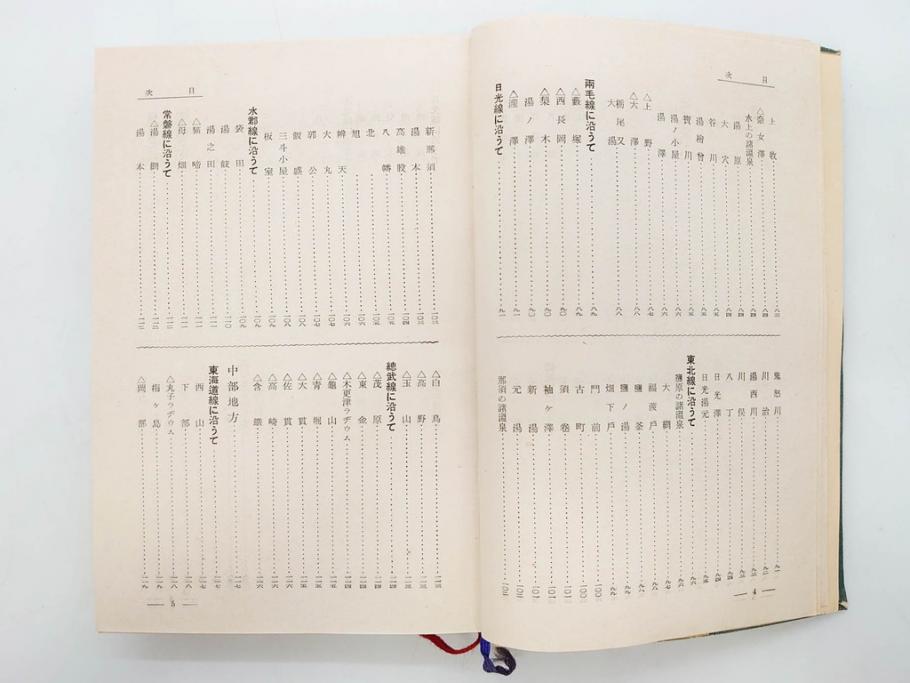 目次
上牧
△奈女澤
水上の諸温泉
湯原
大穴
谷川
湯檜曾
寶川
湯ノ小屋
湯澤
△上野
△大澤
栃尾又
大湯
兩毛線に沿うて
△藪塚
△西長岡
△梨木
湯ノ澤
△瀧澤
日光線に沿うて
鬼怒川
川治
湯西川
川俣
八丁
日光澤
日光湯元
東北線に沿うて
鹽原の諸温泉
大網
福渡戸
鹽釜
鹽ノ湯
畑下戸
門前
古町
須卷
袖ケ澤
新湯
元湯
那須の諸温泉
4
目次
新那須
湯本
高雄股
八幡
北
旭
辨天
大丸
郭公
飯盛
三斗小屋
板室
水郡線に沿うて
袋田
湯岐
湯之田
△猫啼
△母畑
常磐線に沿うて
△湯網
湯本
△白鳥
△高野
△玉山
總武線に沿うて
△茂原
△東金
△木更津ラヂウム
△龜山
△青堀
△大貫
△佐貫
△高崎
△含鑛
中部地方
東海道線に沿うて
西山
下部
△丸子ラヂウム
梅ヶ島
△岡部
5